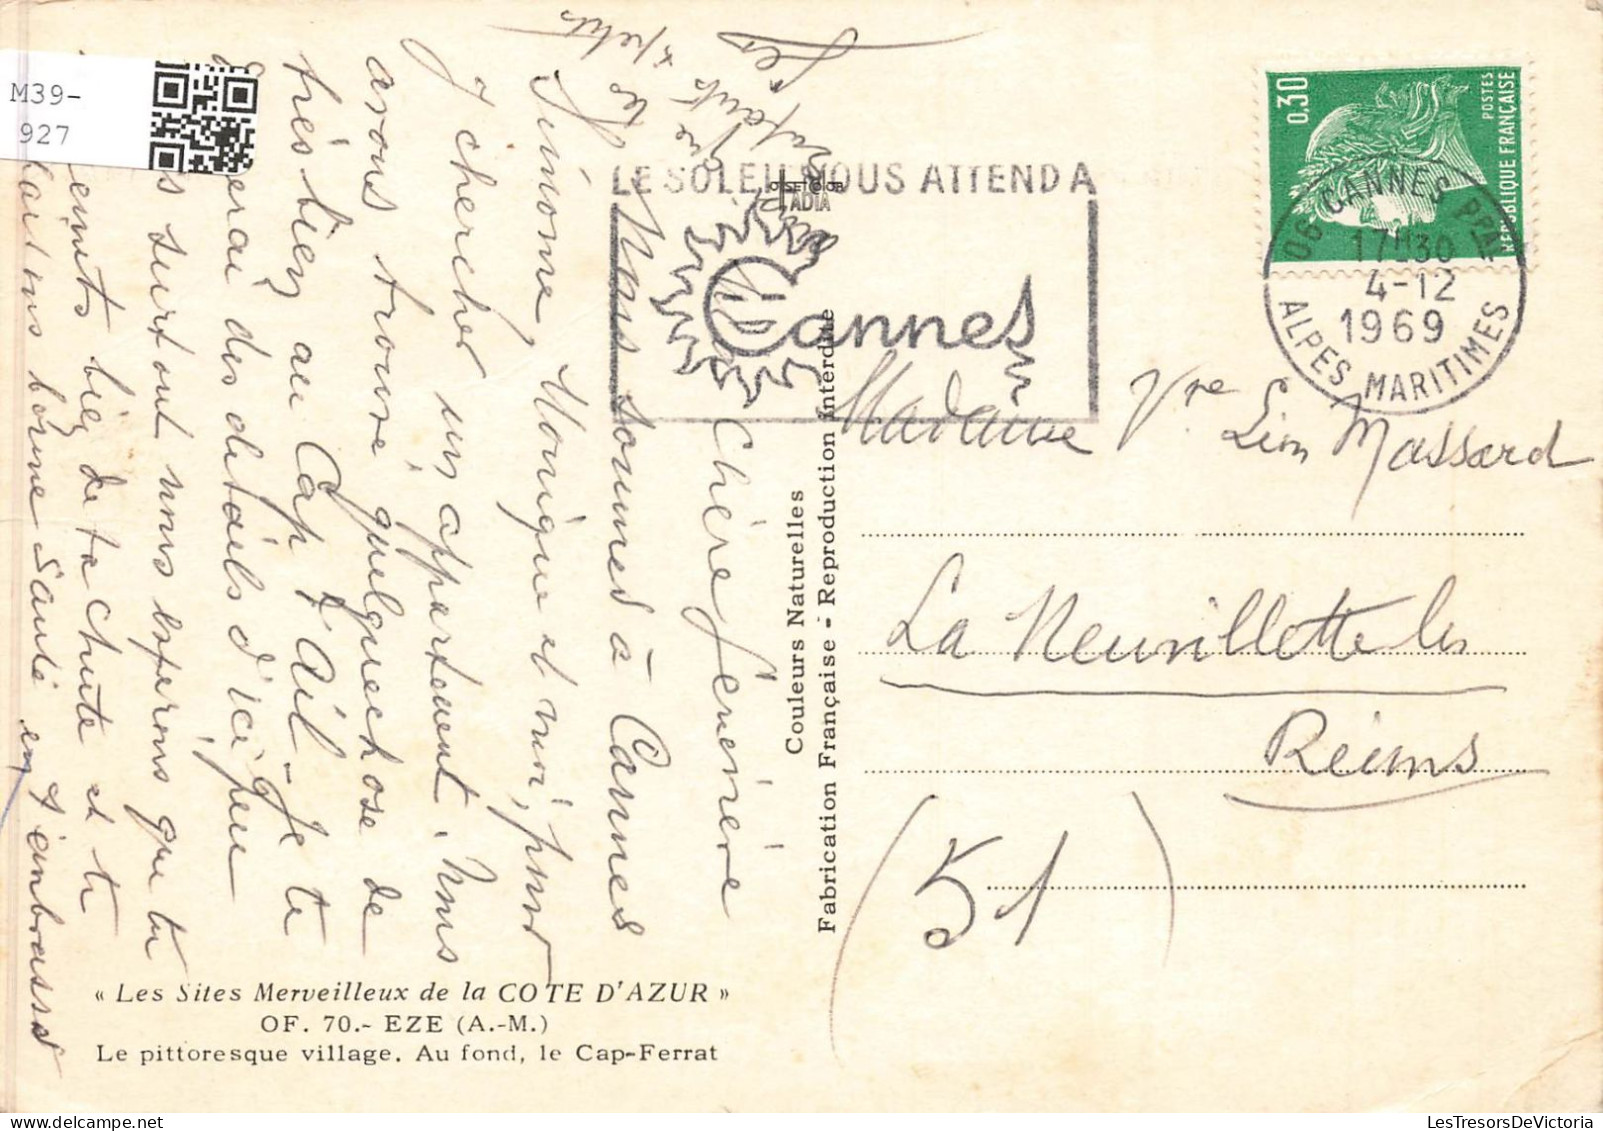 M39-
927
Chère Geneviève
Nous sommes à Cannes
Simone, Monique et moi, pour
chercher un appartement. Nous
avons trouvé quelque chose de
très bien au Cap d'Ail. Je te
des détails d'ici peu
surtout nous espérons que tu
bien de ta chute et te
bonne Santé en t'embrassant
LE SOLEIL VOUS ATTEND A
Cannes
OFFSETCOLOR
TADIA
Couleurs Naturelles
Fabrication Française - Reproduction Interdite
0,30
POSTES
REPUBLIQUE FRANÇAISE
06 CANNES PPAL
17H30
4-12
1969
ALPES MARITIMES
Madame Vve Léon Massard
La Neuvillette les
Reims
(51)
« Les Sites Merveilleux de la COTE D'AZUR »
OF. 70.- EZE (A.-M.)
Le pittoresque village. Au fond, le Cap-Ferrat
LesTresorsDeVictoria.com